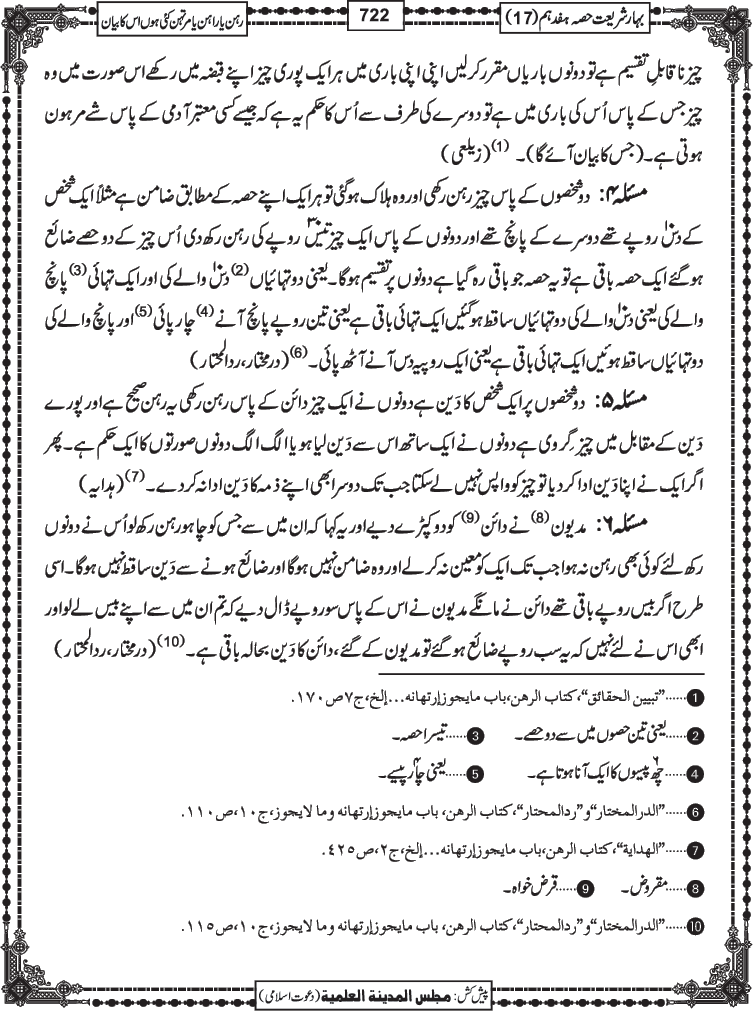 بہارِ شریعت حصہ ہفدہم (17)
722
رہن یا راہن یا مرتہن کئی ہوں اس کا بیان
چیز ناقابلِ تقسیم ہے تو دونوں باریاں مقرر کرلیں اپنی اپنی باری میں ہر ایک پوری چیز اپنے قبضہ میں رکھے اس صورت میں وہ
چیز جس کے پاس اُس کی باری میں ہے تو دوسرے کی طرف سے اُس کا حکم یہ ہے کہ جیسے کسی معتبر آدمی کے پاس شے مرہون
ہوتی ہے۔ (جس کا بیان آئے گا)۔ (1) (زیلعی)
مسئلہ ۴: دو شخصوں کے پاس چیز رہن رکھی اور وہ ہلاک ہوگئی تو ہر ایک اپنے حصہ کے مطابق ضامن ہے مثلاً ایک شخص
کے دس۱۰ روپے تھے دوسرے کے پانچ تھے اور دونوں کے پاس ایک چیز تیس۳۰ روپے کی رہن رکھ دی اُس چیز کے دو حصے ضائع
ہوگئے ایک حصہ باقی ہے تو یہ حصہ جو باقی رہ گیا ہے دونوں پر تقسیم ہوگا۔ یعنی دو تہائیاں (2) دس۱۰ والے کی اور ایک تہائی (3) پانچ
والے کی یعنی دس۱۰ والے کی دو تہائیاں ساقط ہوگئیں ایک تہائی باقی ہے یعنی تین روپے پانچ آنے (4) چار پائی (5) اور پانچ والے کی
دو تہائیاں ساقط ہوئیں ایک تہائی باقی ہے یعنی ایک روپیہ دس آنے آٹھ پائی۔ (6) (درمختار، ردالمحتار)
مسئلہ ۵: دو شخصوں پر ایک شخص کا دَین ہے دونوں نے ایک چیز دائن کے پاس رہن رکھی یہ رہن صحیح ہے اور پورے
دَین کے مقابل میں چیز گروی ہے دونوں نے ایک ساتھ اس سے دَین لیا ہو یا الگ الگ دونوں صورتوں کا ایک حکم ہے۔ پھر
اگر ایک نے اپنا دَین ادا کردیا تو چیز کو واپس نہیں لے سکتا جب تک دوسرا بھی اپنے ذمہ کا دَین ادا نہ کردے۔ (7) (ہدایہ)
مسئلہ ۶: مدیون (8) نے دائن (9) کو دو کپڑے دیے اور یہ کہا کہ ان میں سے جس کو چاہو رہن رکھ لو اُس نے دونوں
رکھ لئے کوئی بھی رہن نہ ہوا جب تک ایک کو معین نہ کرلے اور وہ ضامن نہیں ہوگا اور ضائع ہونے سے دَین ساقط نہیں ہوگا۔ اسی
طرح اگر بیس روپے باقی تھے دائن نے مانگے مدیون نے اس کے پاس سو روپے ڈال دیے کہ تم ان میں سے اپنے بیس لے لو اور
ابھی اس نے لئے نہیں کہ یہ سب روپے ضائع ہوگئے تو مدیون کے گئے، دائن کا دَین بحالہ باقی ہے۔ (10) (درمختار، ردالمحتار)
1 ......"تبیین الحقائق"، کتاب الرهن، باب مایجوز إرتهانه...إلخ، ج۷ ص۱۷۰.
2 ......یعنی تین حصوں میں سے دو حصے۔ 3 ......تیسرا حصہ۔
4 ......چھ۶ پیسوں کا ایک آنا ہوتا ہے۔ 5 ......یعنی چار۴ پیسے۔
6 ......"الدرالمختار" و"ردالمحتار"، کتاب الرهن، باب مایجوز إرتهانه وما لایجوز، ج۱۰، ص۱۱۰.
7 ......"الهدایة"، کتاب الرهن، باب مایجوز إرتهانه...إلخ، ج۲، ص۴۲۵.
8 ......مقروض۔ 9 ......قرض خواہ۔
10 ......"الدرالمختار" و"ردالمحتار"، کتاب الرهن، باب مایجوز إرتهانه وما لایجوز، ج۱۰، ص۱۱۵.
پیش کش: مجلس المدینة العلمیة (دعوت اسلامی)